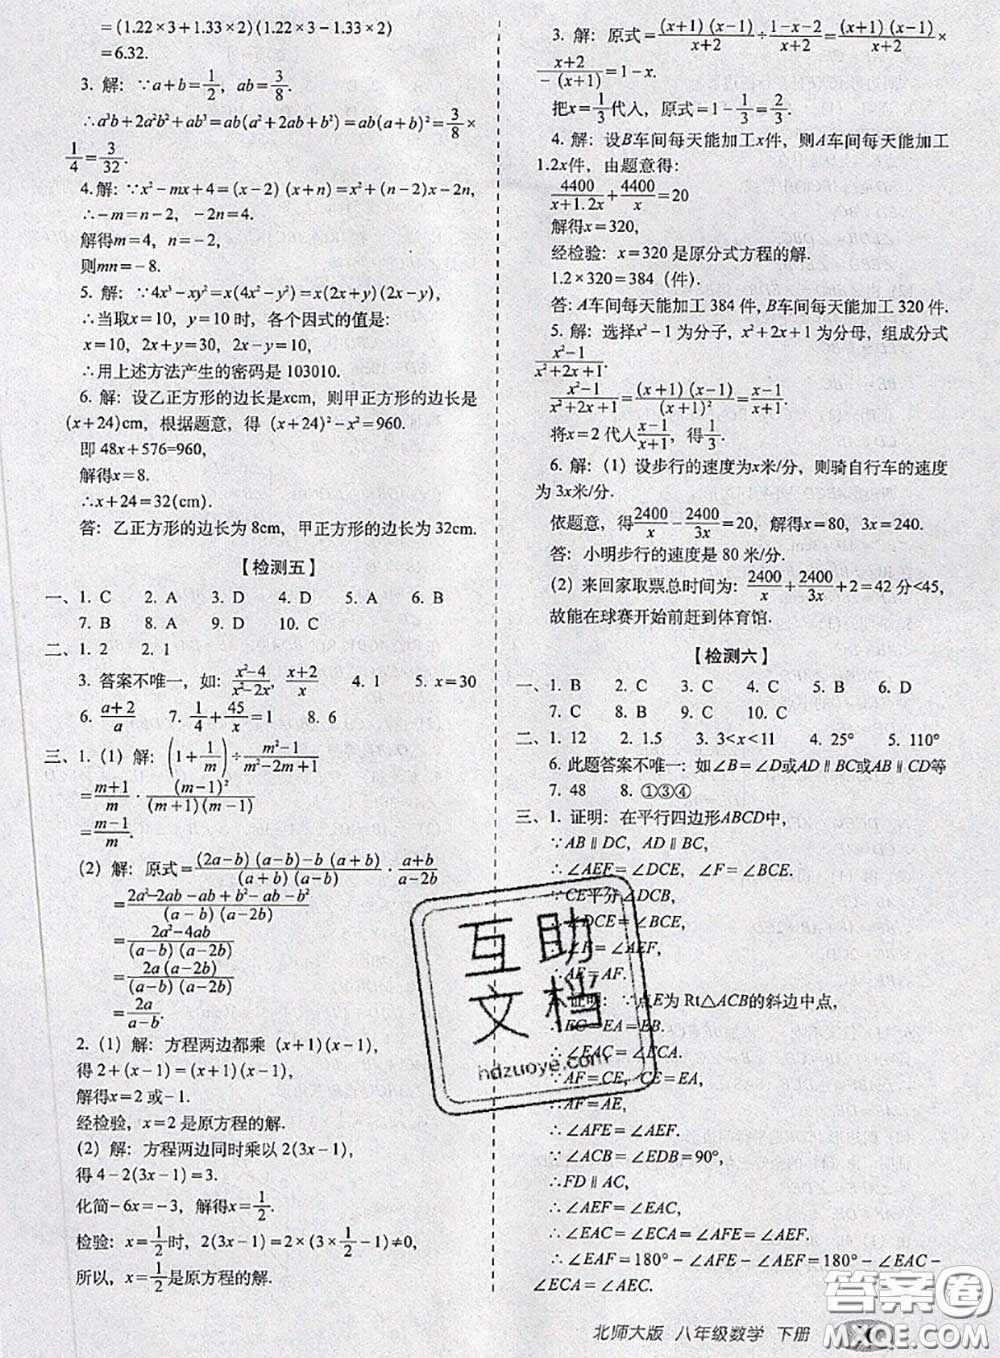 =(1.22×3+1.33×2)(1.22×3-1.33×2)
=6.32.
3. 解：∵a+b=1/2，ab=3/8.
∴a³b+2a²b²+ab³=ab(a²+2ab+b²)=ab(a+b)²=3/8×
1/4=3/32.
4. 解：∵x²-mx+4=(x-2)(x+n)=x²+(n-2)x-2n，
∴-m=n-2，-2n=4.
解得m=4，n=-2，
则mn=-8.
5. 解：∵4x³-xy²=x(4x²-y²)=x(2x+y)(2x-y)，
∴当取x=10，y=10时，各个因式的值是：
x=10，2x+y=30，2x-y=10，
∴用上述方法产生的密码是103010.
6. 解：设乙正方形的边长是xcm，则甲正方形的边长是
(x+24)cm，根据题意，得(x+24)²-x²=960.
即48x+576=960，
解得x=8.
∴x+24=32(cm).
答：乙正方形的边长为8cm，甲正方形的边长为32cm.
【检测五】
一、1. C 2. A 3. D 4. D 5. A 6. B
7. B 8. A 9. D 10. C
二、1. 2 2. 1
3. 答案不唯一，如：(x²-4)/(x²-2x)，(x+2)/x 4. 1 5. x=30
6. (a+2)/a 7. 1/4+45/x=1 8. 6
三、1. (1) 解：(1+1/m)÷(m²-1)/(m²-2m+1)
=(m+1)/m·(m-1)²/((m+1)(m-1))
=(m-1)/m.
(2) 解：原式=((2a-b)(a-b)-b(a+b))/((a+b)(a-b))·(a+b)/(a-2b)
=(2a²-2ab-ab+b²-ab-b²)/((a-b)(a-2b))
=(2a²-4ab)/((a-b)(a-2b))
=(2a(a-2b))/((a-b)(a-2b))
=2a/(a-b).
2. (1) 解：方程两边都乘(x+1)(x-1)，
得2+(x-1)=(x+1)(x-1)，
解得x=2或-1.
经检验，x=2是原方程的解.
(2) 解：方程两边同时乘以2(3x-1)，
得4-2(3x-1)=3.
化简-6x=-3，解得x=1/2.
检验：x=1/2时，2(3x-1)=2×(3×1/2-1)≠0，
所以，x=1/2是原方程的解.
3. 解：原式=(x+1)(x-1)/(x+2)÷(1-x-2)/(x+2)=(x+1)(x-1)/(x+2)×
(x+2)/(-(x+1))=1-x.
把x=1/3代入，原式=1-1/3=2/3.
4. 解：设B车间每天能加工x件，则A车间每天能加工
1.2x件，由题意得：
4400/(x+1.2x)+4400/x=20
解得x=320，
经检验：x=320是原分式方程的解.
1.2×320=384（件）.
答：A车间每天能加工384件，B车间每天能加工320件.
5. 解：选择x²-1为分子，x²+2x+1为分母，组成分式
(x²-1)/(x²+2x+1).
(x²-1)/(x²+2x+1)=(x+1)(x-1)/(x+1)²=(x-1)/(x+1).
将x=2代入(x-1)/(x+1)，得1/3.
6. 解：(1) 设步行的速度为x米/分，则骑自行车的速度
为3x米/分.
依题意，得2400/x-2400/3x=20，解得x=80，3x=240.
答：小明步行的速度是80米/分.
(2) 来回家取票总时间为：2400/x+2400/3x+2=42分<45，
故能在球赛开始前赶到体育馆.
【检测六】
一、1. B 2. C 3. C 4. C 5. B 6. D
7. C 8. C 9. C 10. C
二、1. 12 2. 1.5 3. 3<x<11 4. 25° 5. 110°
6. 此题答案不唯一：如∠B=∠D或AD∥BC或AB∥CD等
7. 48 8. ①③④
三、1. 证明：在平行四边形ABCD中，
∵AB∥DC，AD∥BC，
∴∠AEF=∠DCE，∠F=∠BCE.
∵CE平分∠DCB，
∴∠DCE=∠BCE，
∴∠F=∠AEF，
∴AE=AF.
证明：∵点E为Rt△ACB的斜边中点，
∴EC=EA=EB.
∴∠EAC=∠ECA.
∵AF=CE，CE=EA，
∴AF=AE，
∴∠AFE=∠AEF.
∵∠ACB=∠EDB=90°，
∴FD∥AC，
∴∠AEF=∠EAC，
∴∠EAC=∠ECA=∠AFE=∠AEF.
∴∠EAF=180°-∠AFE-∠AEF=180°-∠EAC-
∠ECA=∠AEC.
互助
文档
hdzuoye.com
北师大版 八年级数学 下册
答案圈
MXQE.COM